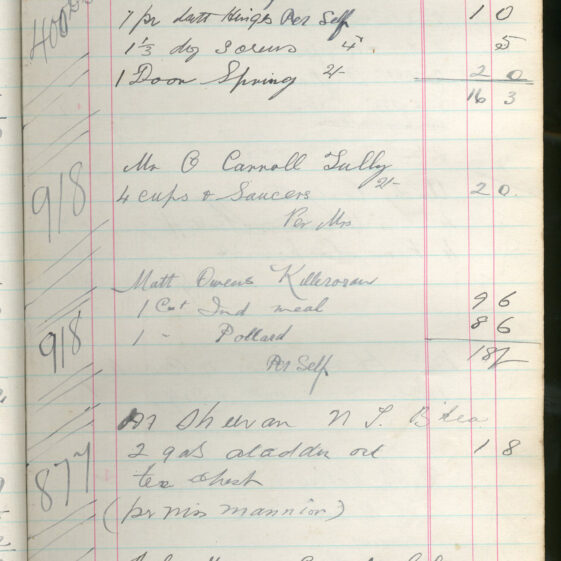 1 pr Butt Hinges Per Self 1 0
1 1/3 doz Screws 4d. 5
1 Door Spring 2/- 2 0
16 3
918
Mr C Carroll Tully
4 Cups & Saucers 2/- 2 0
Per Mrs
Matt Owens Killerosan
1 Cwt Ind meal 9 6
918
1 - Pollard 8 6
Per Self 18/-
Sheeran N T.
2 gals aladdin oil 1 8
877
tea chest
(per Miss Mannion)